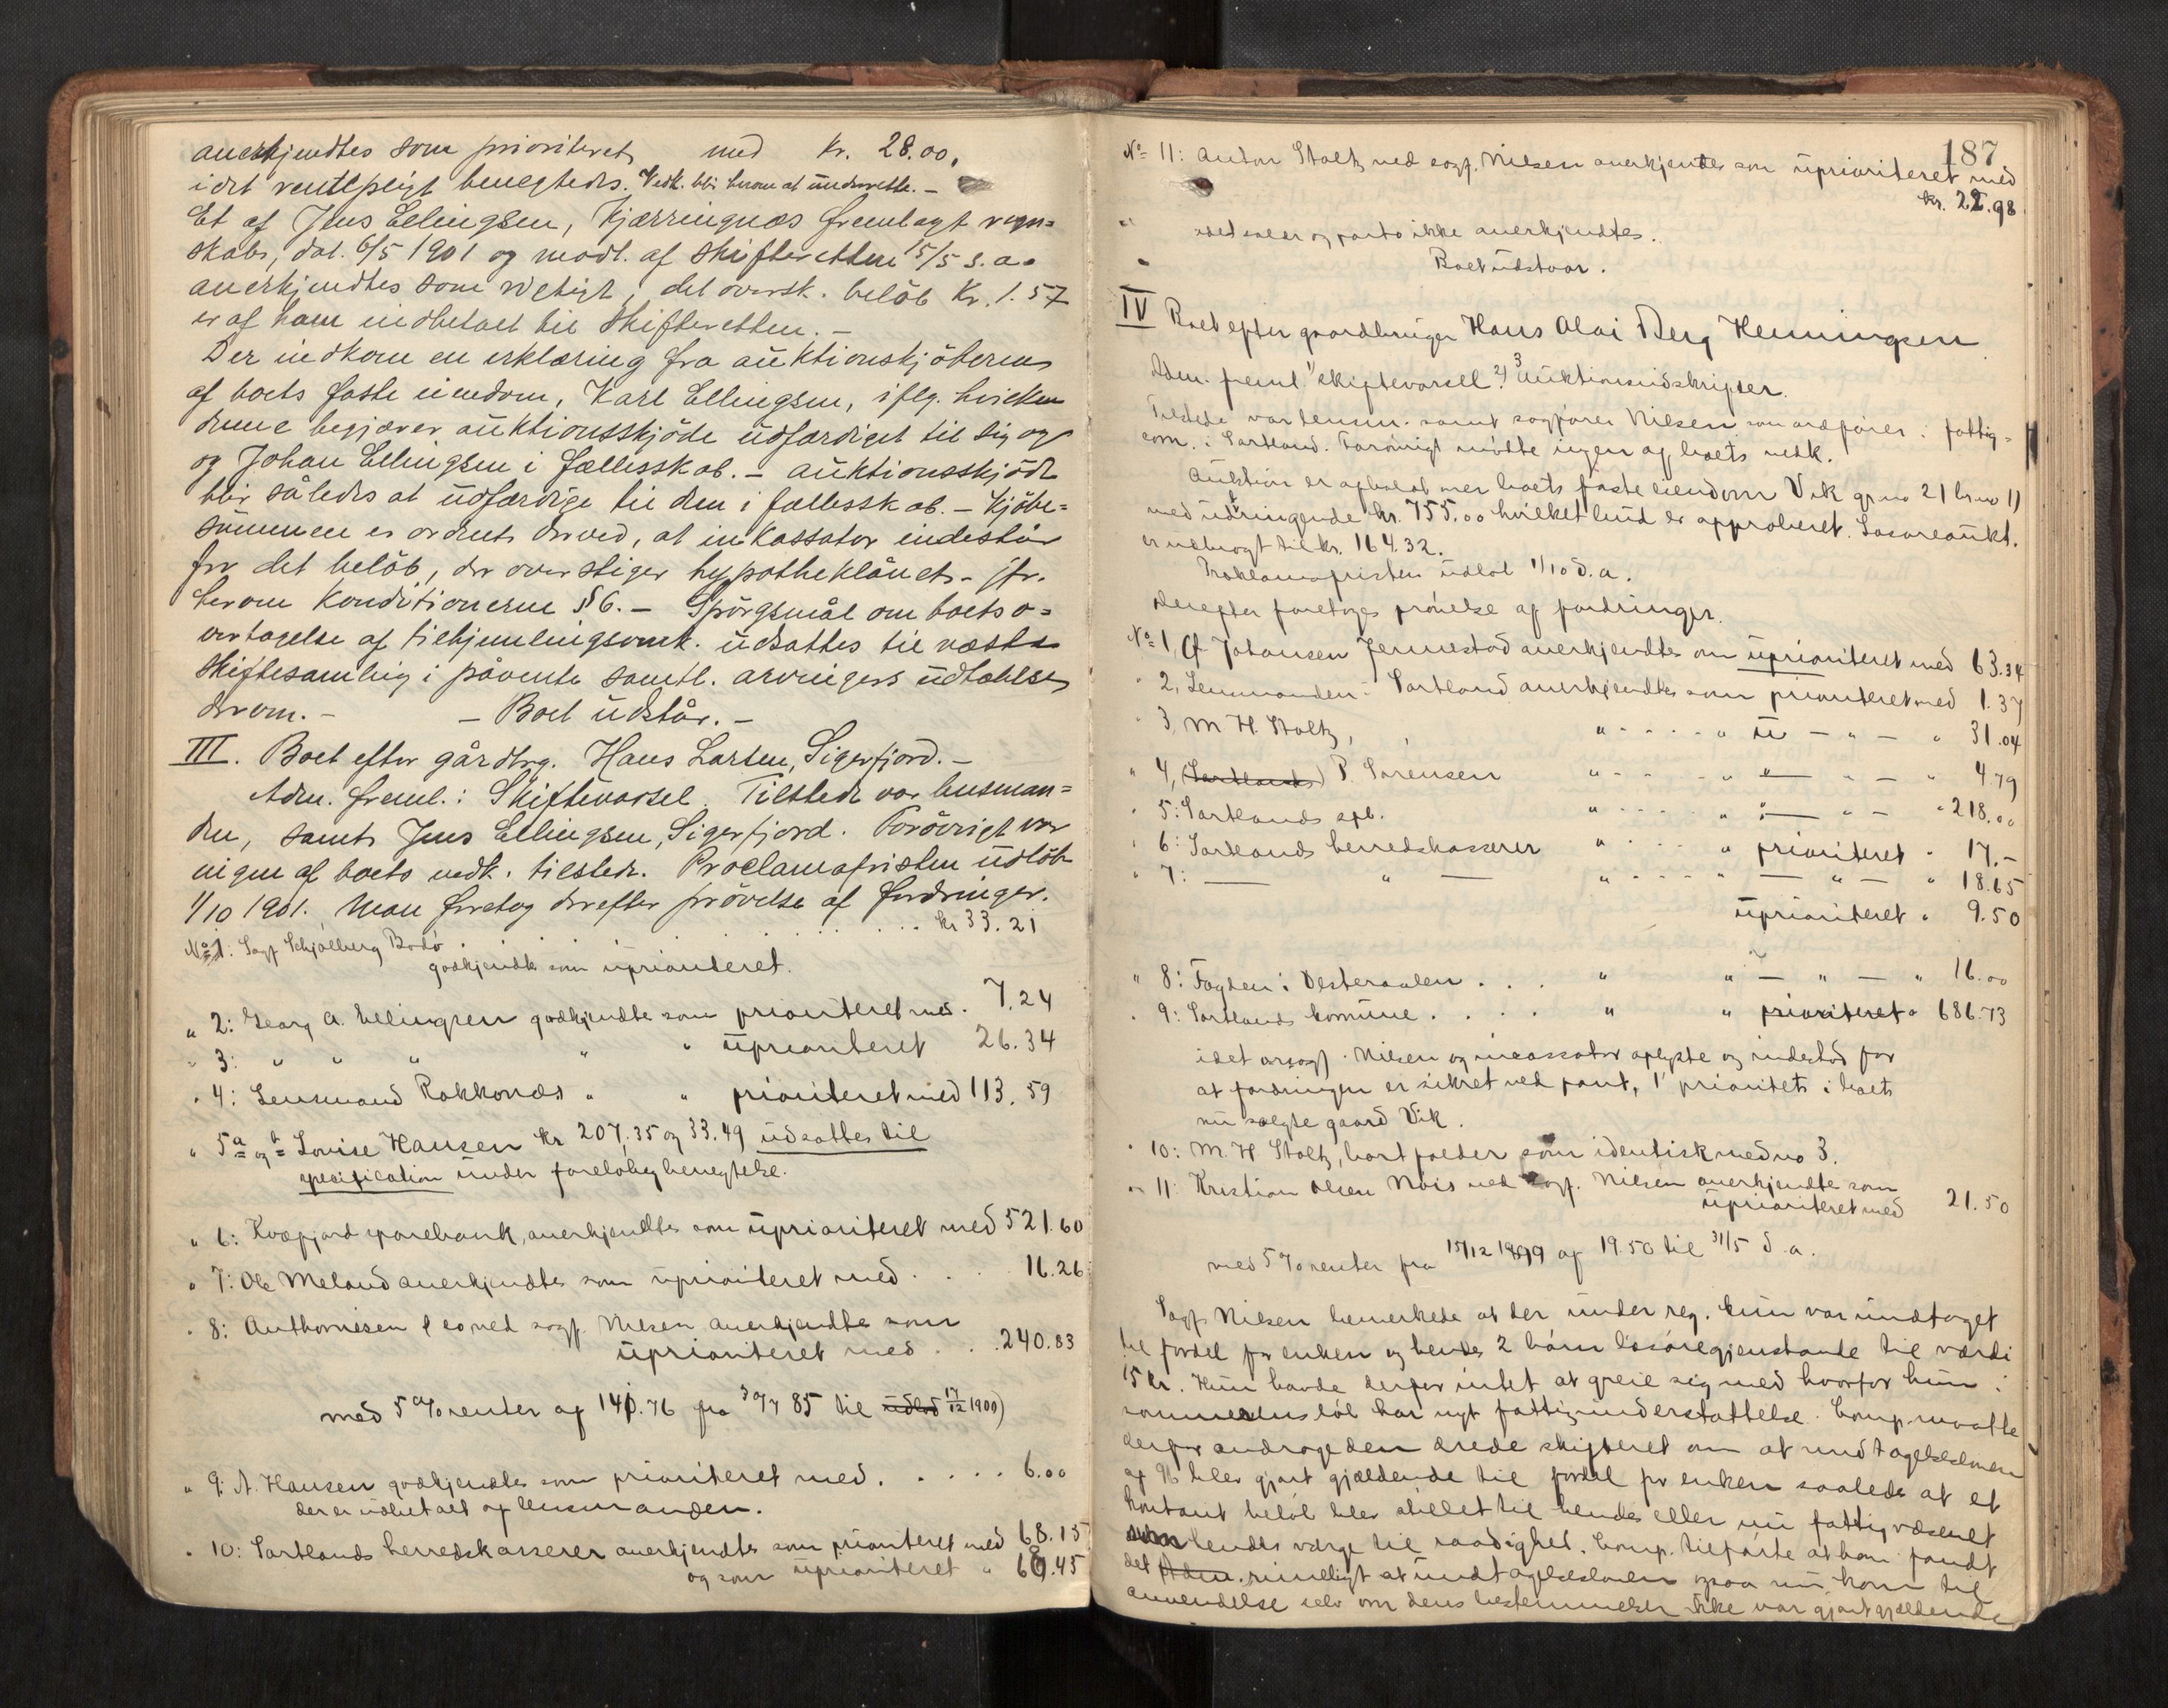 anerkjendtes som prioriteret med kr. 28.00.
idet rentepligt benegtedes. Vedk. blir herom at underrette. –
Et af Jens Ellingsen, Kjærringnæs fremlagt regn=
skabs, dat. 6/5 1901 og modt. af skifteretten 15/5 s.a.
anerkjendtes som rigtigt, det oversk. beløb Kr. 1.57
er af ham indbetalt til skifteretten. –
Der indkom en erklæring fra auktionskjøberen
af boets faste eiendom, Karl Ellingsen, iflg. hvilken
denne begjærer auktionsskjøde udfærdiget til sig og
og Johan Ellingsen i fællesskab. – auktionsskjøde
blir således at udfærdige til dem i fællesskab. – Kjøbe=
summen er ordnet derved, at inkassator indestår
for det beløb, der overstiger hypotheklånet – jfr.
herom Konditionerne § 6. – Spørgsmål om boets o=
vertagelse af tilhjemlingsomk. udsattes til næste
skiftesamling i påvente samtl. arvingers udtalelse
derom. – – Boet udstår. –
III. Boet efter gårdbrg. Hans Larsen, Sigerfjord. –
Adm. freml.: Skiftevarsel. Tilstede var lensman=
den, samt Jens Ellingsen, Sigerfjord. Forøvrigt var
ingen af boets vedk. tilstede. Proclamafristen udløb
1/10 1901. Man foretog derefter prøvelse af fordringer.
No 1: Sagf Schjølberg Bodø . . . . . . kr 33.21
godkjendtes som uprioriteret.
" 2: Georg A. Ellingsen godkjendtes som prioriteret med . 7.24
" 3: " " " " " uprioriteret 26.34
" 4: Lensmand Rokkonæs " " prioriteret med 113.59
" 5 a og b Lovise Hansen kr 207.35 og 33.49 udsattes til
specification under foreløbig benegtelse.
" 6: Kvæfjord sparebank, anerkjendtes som uprioriteret med 521.60
" 7: Ole Meland anerkjendtes som uprioriteret med . . 16.26
" 8: Anthonisen & co ved sagf. Nilsen anerkjendtes som
uprioriteret med . . . 240.83
med 5 % renter af 140.76 fra 30/7 85 til 17/12 1900)
" 9: A. Hansen godkjendtes som prioriteret med . . . . . 6.00
der er udbetalt af lensmanden.
" 10: Sortlands herredskasserer anerkjendtes som prioriteret med 68.15
og som uprioriteret " 68.45
187.
No 11: Anton Stoltz ved sagf. Nilsen anerkjendtes som uprioriteret med
kr. 22.98
idet salær og porto ikke anerkjendtes.
Boet udstaar.
IV Boet efter gaardbruger Hans Olai Berg Henningsen
Adm. freml. 1 skiftevarsel 2/3 Auktionsudskrifter.
Tilstede var lensm. samt sagfører Nilsen som ordfører i fattig=
com. i Sortland. Forøvrigt mødte ingen af boets vedk.
Auktion er afholdt over boets faste eiendom Vik gr. no 21 br. no 11
med udbringende kr. 755.00 hvilket bud er approberet. Løsøreaukt.
er udbragt til kr. 164.32.
Proklamafristen udløb 1/10 d.a.
Derefter foretoges prøvelse af fordringer.
No 1, Johansen Jennestad anerkjendtes om uprioriteret med 63.34
" 2, Lensmanden i Sortland anerkjendtes som prioriteret med 1.37
" 3, M. H. Stoltz, " - - - - " u – " – " 31.04
" 4, (Sortlands) P. Sørensen " - - - " " – " – " 4.79
" 5: Sortlands spb. " - - - " – " – " 218.00
" 6: Sortlands herredskasserer " - - - " prioriteret - 17.–
" 7: – " – " - - - - " – " – " 18.65
uprioriteret " 9.50
" 8: Fogden i Vesteraalen . . . " " – " – " 16.00
" 9: Sortlands komune . . . . " " prioriteret " 686.73
idet orsagf. Nilsen og incassator oplyste og indestod for
at fordringen er sikret ved pant, 1' prioritets i boets
nu solgte gaard Vik.
" 10: M. H. Stoltz, bortfalder som identisk med no 3.
" 11: Kristian Olsen Nois ved sagf. Nilsen anerkjendtes som
uprioriteret med 21.50
med 5 % renter fra 15/12 1899 af 19.50 til 31/5 d.a.
Sagf Nilsen bemerkede at der under reg. kun var undtaget
til fordel for enken og hendes 2 børn løsøregjenstande til værdi
15 kr. Hun havde derfor intet at greie sig med hvorfor hun i
sommerens løb har nydt fattigunderstøttelse. Comp. maatte
derfor andrage den ærede skifteret om at undtagelsesloven
af 96 blev gjort gjældende til fordel for enken saaledes at et
kontant beløb blev stillet til hendes eller nu fattigvæsenet
som hendes værge til raadighed. Comp. tilførte at han fandt
det Adm. rimeligt at undtagelsesloven ogsaa nu kom til
anvendelse selv om dens bestemmelser ikke var gjort gjældende